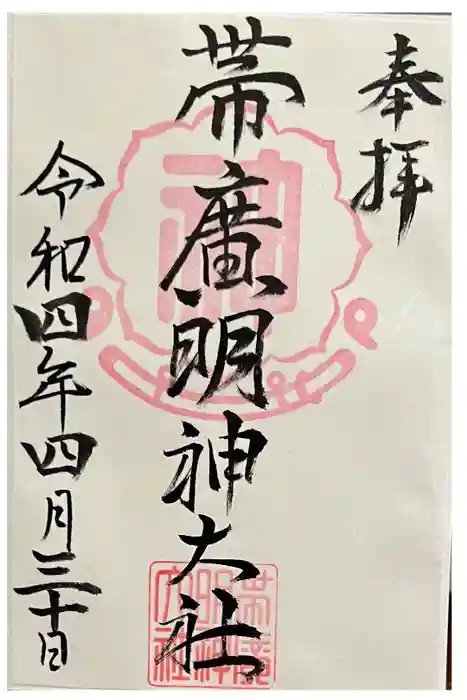 奉拝
帯廣明神大社
令和四年四月三十日
神
帯廣
明神
大社